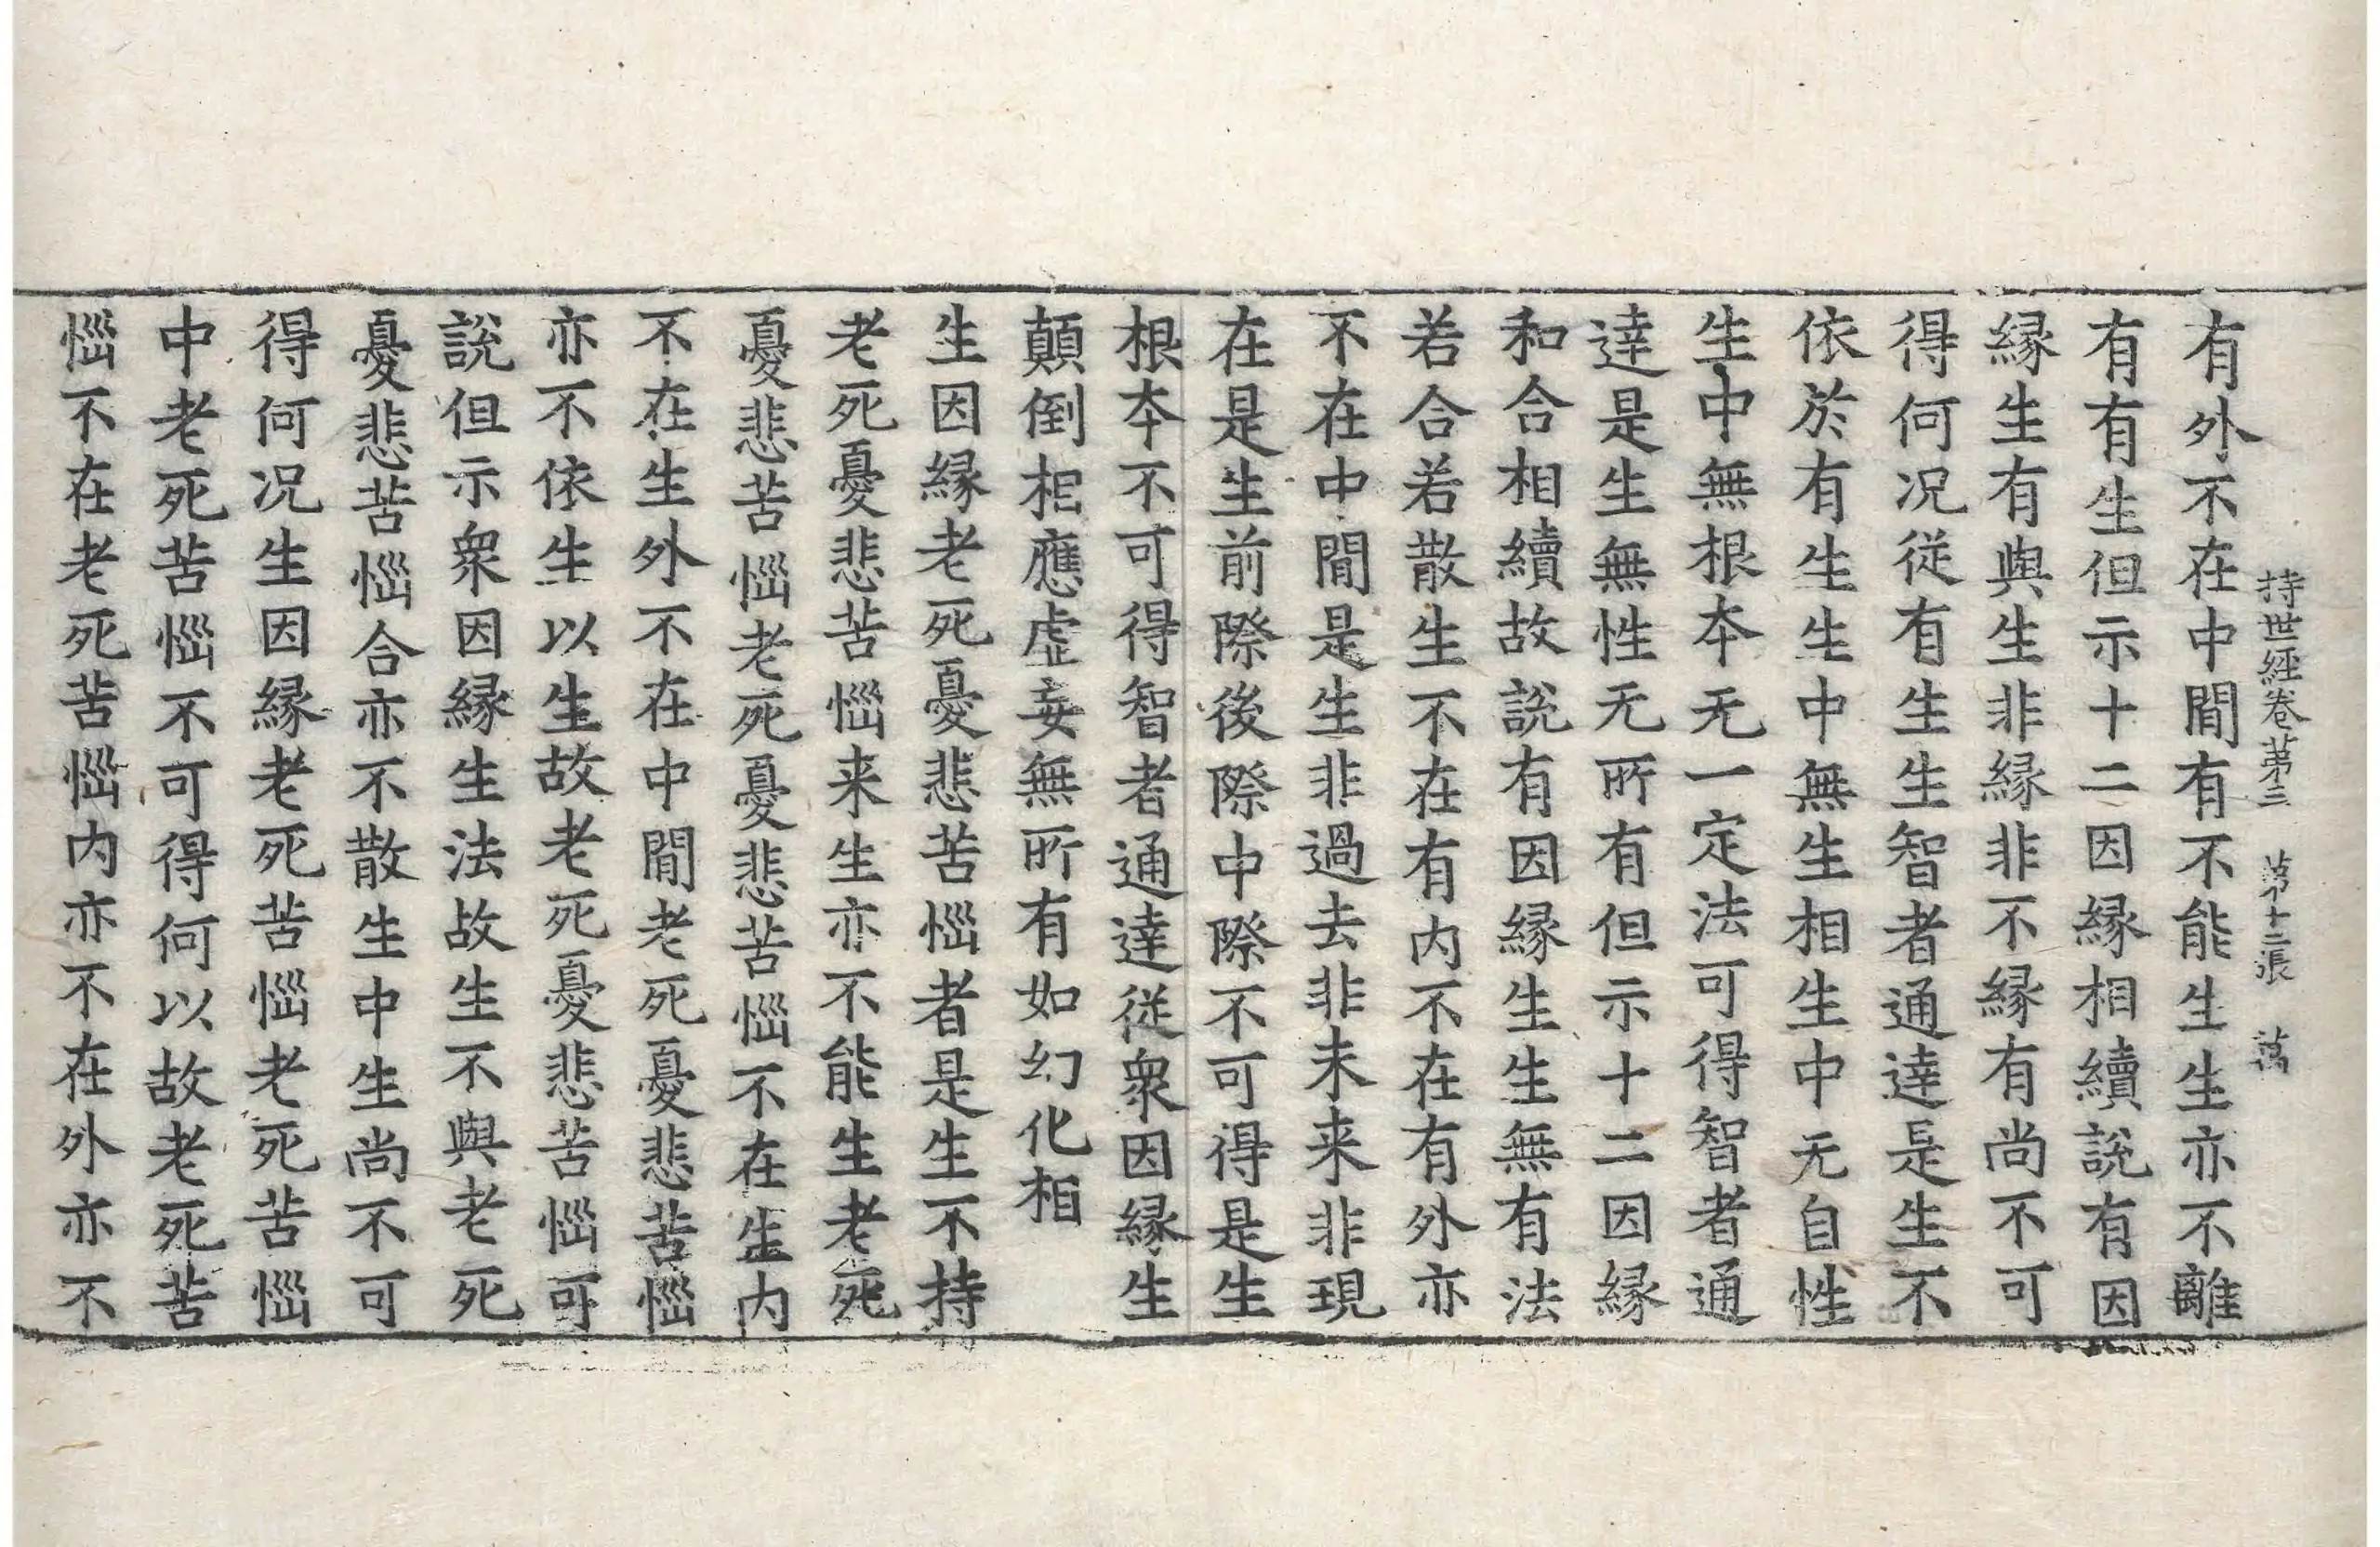 持世經卷第三 第十二張 萬
有外不在中閒有不能生生亦不離
有有生但示十二因緣相續說有因
緣生有與生非緣非不緣有尚不可
得何况從有生生智者通達是生不
依於有生生中無生相生中无自性
生中無根本无一定法可得智者通
達是生無性无所有但示十二因緣
和合相續故說有因緣生生無有法
若合若散生不在有内不在有外亦
不在中閒是生非過去非未来非現
在是生前際後際中際不可得是生
根本不可得智者通達從衆因緣生
顛倒相應虛妄無所有如幻化相
生因緣老死憂悲苦惱者是生不持
老死憂悲苦惱来生亦不能生老死
憂悲苦惱老死憂悲苦惱不在生内
不在生外不在中閒老死憂悲苦惱
亦不依生以生故老死憂悲苦惱可
說但示衆因緣生法故生不與老死
憂悲苦惱合亦不散生中生尚不可
得何况生因緣老死苦惱老死苦惱
中老死苦惱不可得何以故老死苦
惱不在老死苦惱内亦不在外亦不